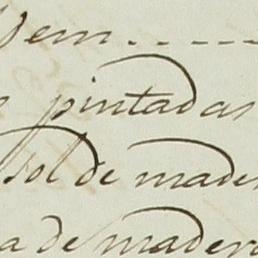 Idem....
pintadas
sol de made
a de madera